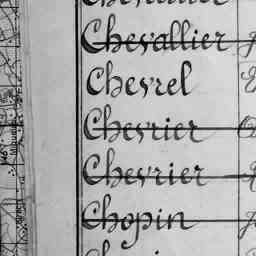 Chevallier
Chevrel
Chevrier
Chevrier
Chopin